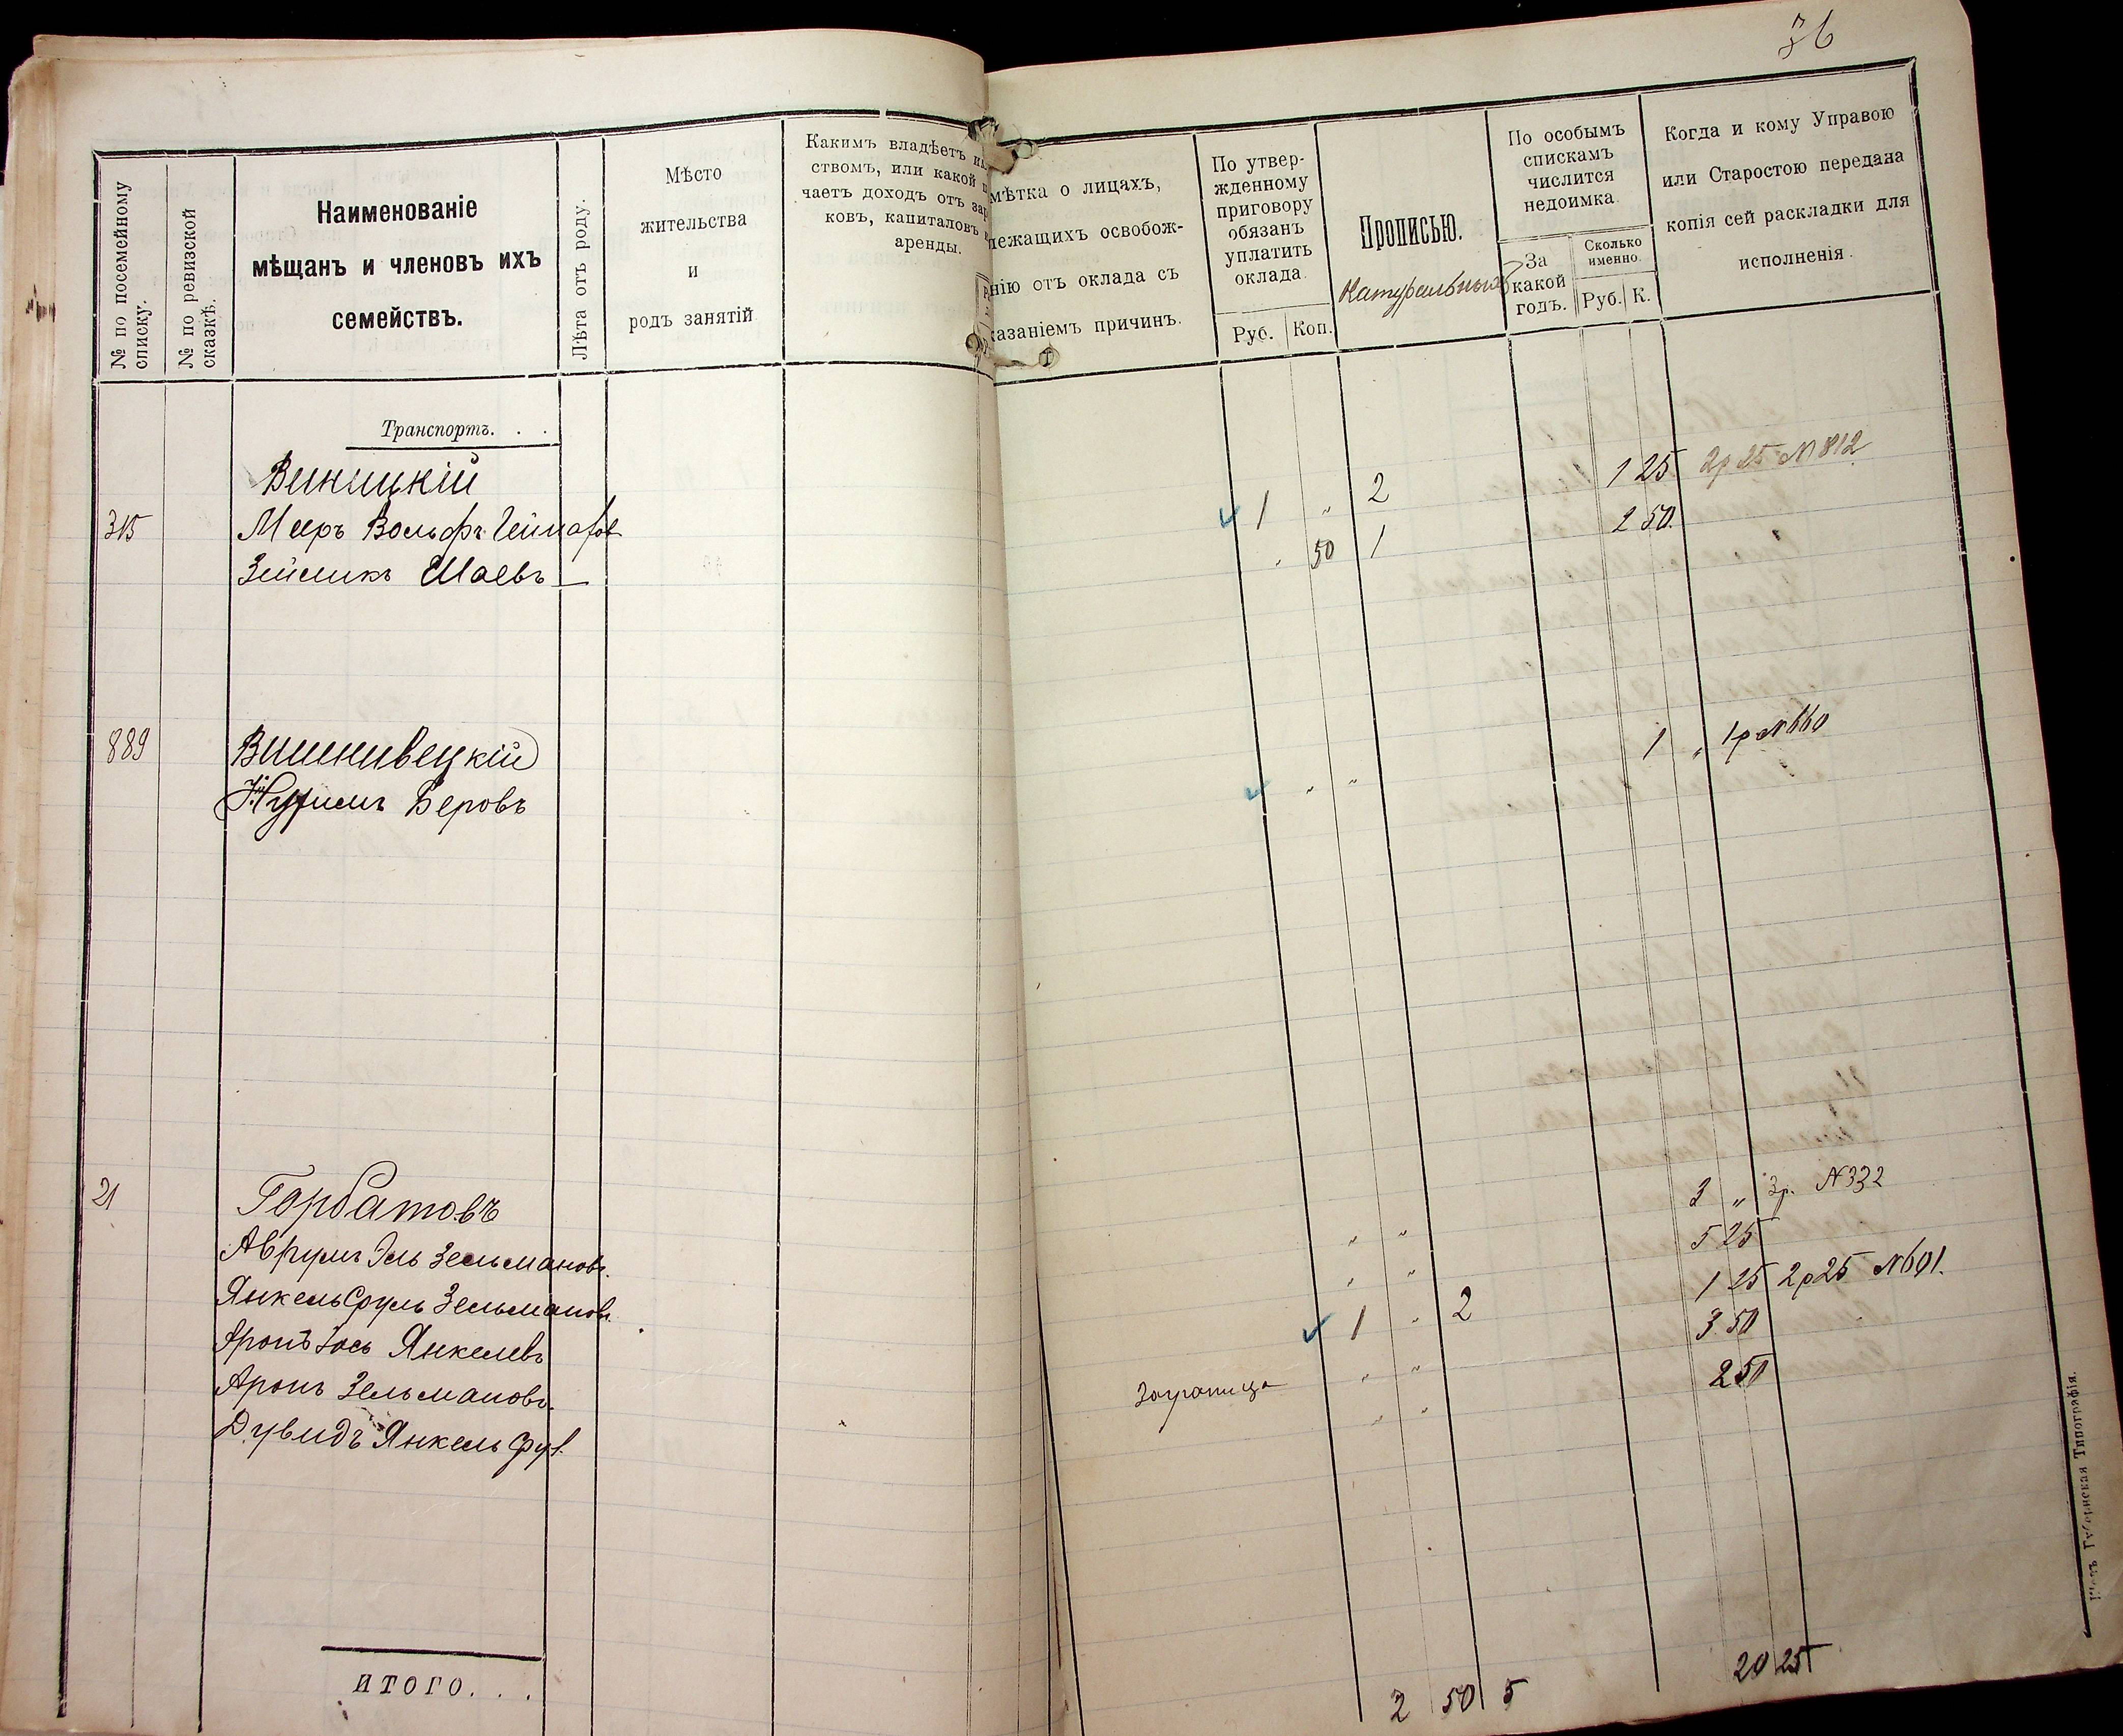 36
№ по посемейному списку.
№ по ревизской сказкѣ.
Наименованіе
мѣщанъ и членовъ ихъ
семействъ.
Лѣта отъ роду.
Мѣсто
жительства
и
родъ занятій
Какимъ владѣетъ
ствомъ, или какой
чаетъ доходъ отъ зар
ковъ, капиталовъ
аренды.
мѣтка о лицахъ,
лежащихъ освобож-
нію отъ оклада съ
казаніемъ причинъ.
По утвер-
жденному
приговору
обязанъ
уплатить
оклада.
Руб. Коп.
Прописью.
Натуральныхъ
По особымъ
спискамъ
числится
недоимка.
За
какой
годъ.
Сколько
именно.
Руб. К.
Когда и кому Управою
или Старостою передана
копія сей раскладки для
исполненія.
Транспортъ. . .
Виницкій
315 Мееръ Вольфъ 1 „ 2 1 25 2р 25 №812
Зейликъ Шаевъ „ 50 1 2 50
889 Вишнивецкій
Беровъ „ „ 1 „ 1р №660
21 Горбатовъ
Аврумъ Эль Зельмановъ „ „ 3 „ 3р. №332
Янкель Сруль Зельмановъ „ „ 5 25
Аронъ Іось Янкелевъ 1 „ 2 1 25 2р25 №691.
Аронъ Зельмановъ Заграница „ „ 3 50
Дувидъ Янкель „ „ 2 50
ИТОГО. . . 2 50 5 20 25
Губернская Типографія.